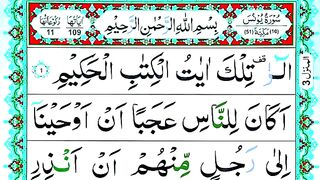 سُوۡرَةُ يُوۡنُسَ
(10) مَكِّيَّةٌ (51)
بِسۡمِ اللهِ الرَّحۡمٰنِ الرَّحِيۡمِ
اٰيَاتُهَا 109
رُكُوۡعَاتُهَا 11
الٓرٰ قف تِلۡكَ اٰيٰتُ الۡكِتٰبِ الۡحَكِيۡمِ ۝۱
اَكَانَ لِلنَّاسِ عَجَبًا اَنۡ اَوۡحَيۡنَاۤ
اِلٰى رَجُلٍ مِّنۡهُمۡ اَنۡ اَنۡذِرِ
المنزل ۳